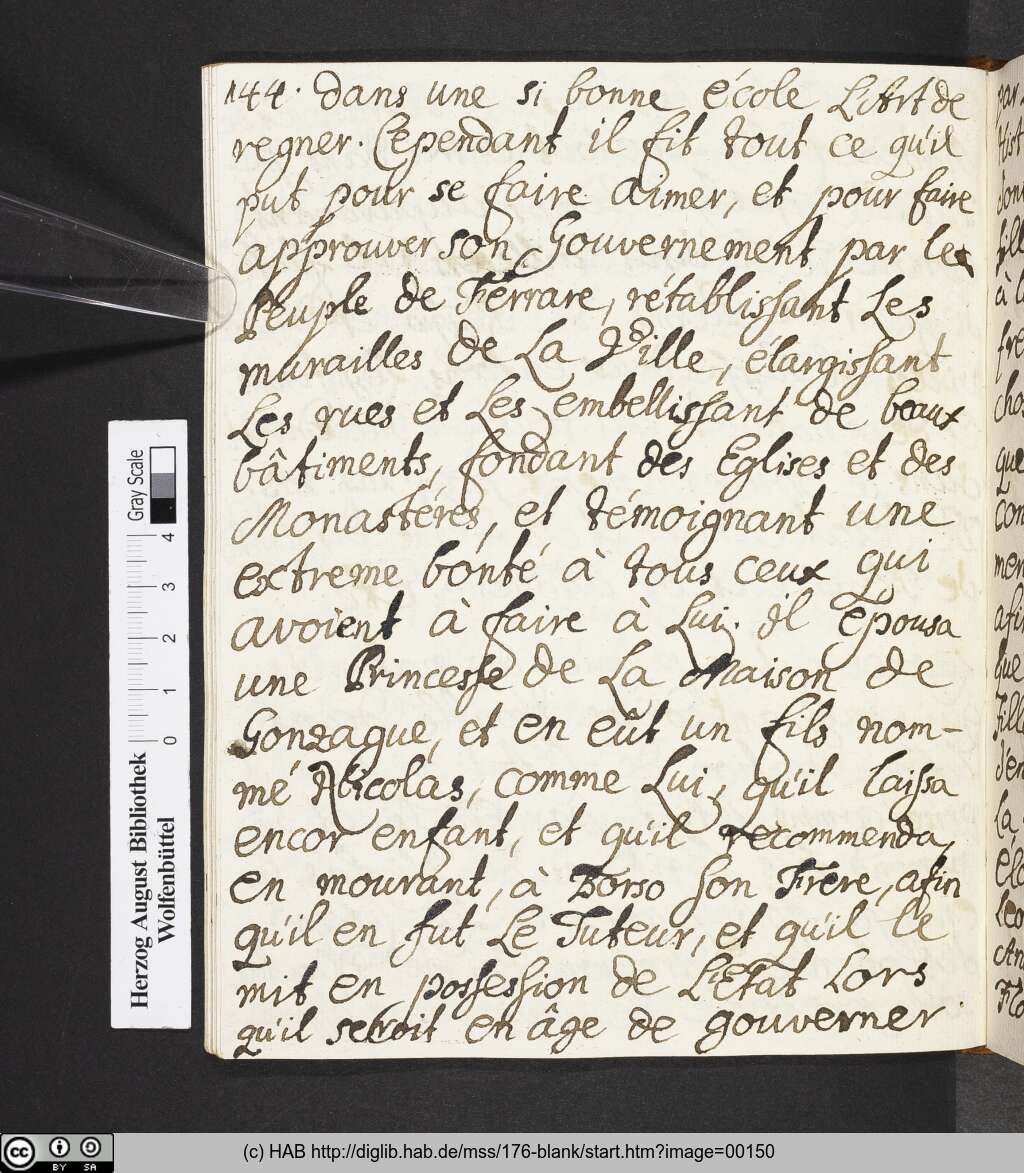 144. dans une si bonne école L'Art de
regner. Cependant il fit tout ce qu'il
put pour se faire aimer, et pour faire
approuver son Gouvernement par le
Peuple de Ferrare, rétablissant Les
murailles de La Ville, élargissant
Les rues et Les embellissant de beaux
bâtiments, fondant des Eglises et des
Monastéres, et témoignant une
extreme bonté à tous ceux qui
avoient à faire à Lui. Il épousa
une Princesse de La Maison de
Gonzague, et en eût un fils nom-
mé Nicolas, comme Lui, qu'il laissa
encor enfant, et qu'il recommenda,
en mourant, à Borso son Frere, afin
qu'il en fut Le Tuteur, et qu'il le
mit en possession de L'Etat Lors
qu'il seroit en âge de gouverner
Gray Scale
0 1 2 3 4
Herzog August Bibliothek
Wolfenbüttel
cc BY SA
(c) HAB http://diglib.hab.de/mss/176-blank/start.htm?image=00150